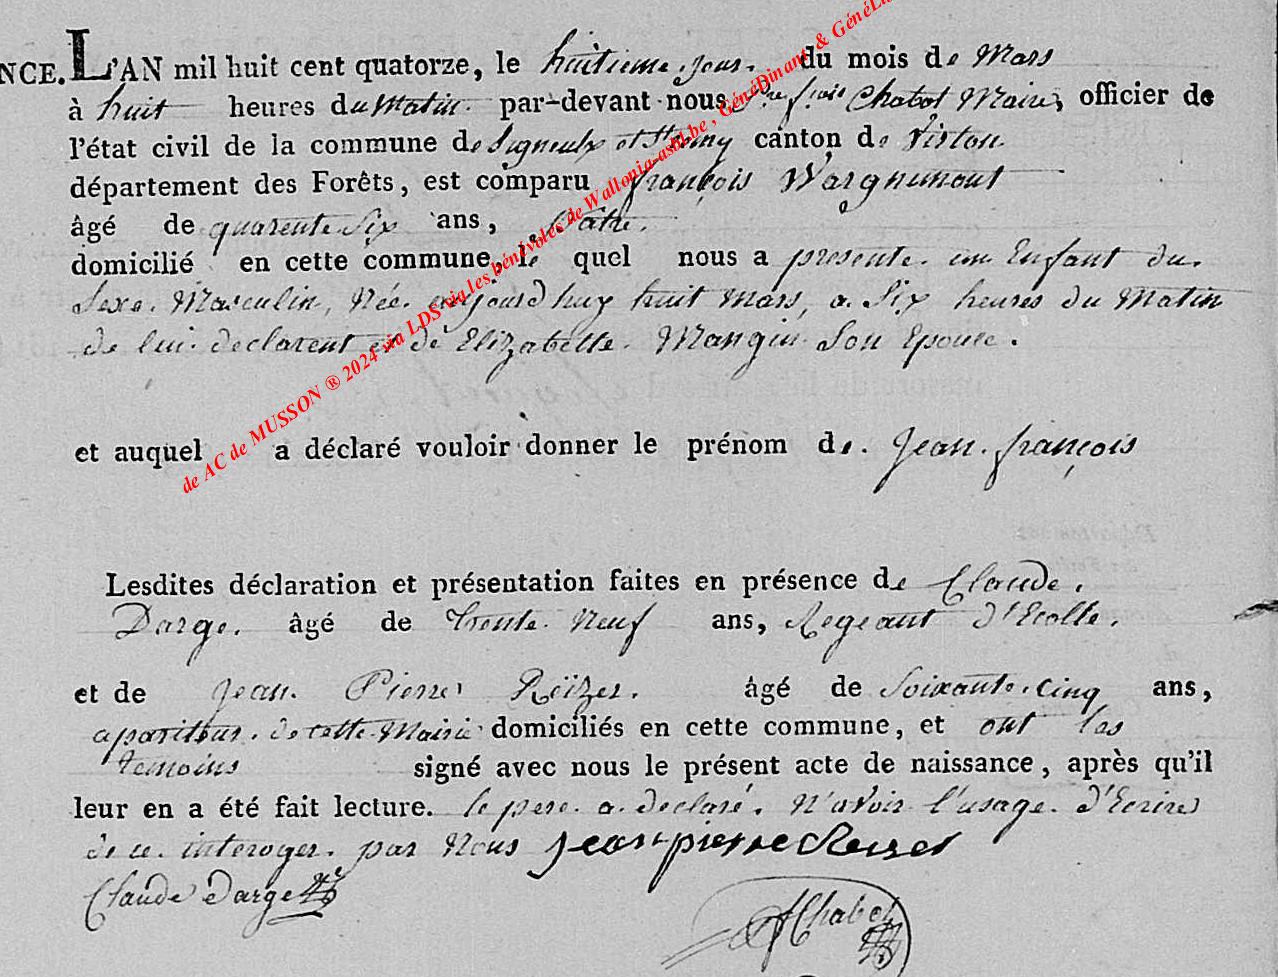 NCE. L'AN mil huit cent quatorze, le huitieme jour du mois de Mars
à huit heures du Matin par-devant nous frois Chabot Maire, officier de
l'état civil de la commune de Signeulx et St Remy canton de Virton
département des Forêts, est comparu françois Wargnimont
âgé de quarente Six ans, Patre.
domicilié en cette commune, le quel nous a presenté un Enfant du
Sexe Masculin, Née aujourd'huy huit Mars, a Six heures du Matin
de lui declarent et de Elizabette Mangin Son Epouse.
et auquel a déclaré vouloir donner le prénom de Jean françois
Lesdites déclaration et présentation faites en présence de Claude
Darge. âgé de trente Neuf ans, Regeant d'Ecolle.
et de Jean Pierre Reïzer. âgé de Soixante Cinq ans,
apariteur de cette Mairie domiciliés en cette commune, et ont les
temoins signé avec nous le présent acte de naissance, après qu'il
leur en a été fait lecture. le pere a declaré N'avoir l'usage d'Ecrire
de ce interoger par Nous Jean pierre Reiser
Claude Darge
Chabot
de AC de MUSSON ® 2024 via LDS via les bénévoles de Wallonia-asbl.be, GénéDinant & GénéLu